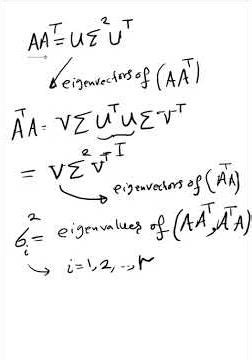 AAᵀ = UΣ²Uᵀ
eigenvectors of (AAᵀ)
AᵀA = VΣUᵀUΣVᵀ
I
= VΣ²Vᵀ
eigenvectors of (AᵀA)
σᵢ² = eigenvalues of (AAᵀ, AᵀA)
i=1,2,..,r